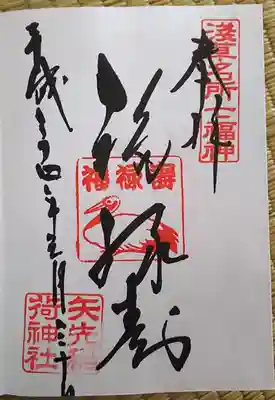 淺草名所七福神
奉拝
福禄寿
壽禄福
平成二十四年五月三十日
矢先稲
荷神社